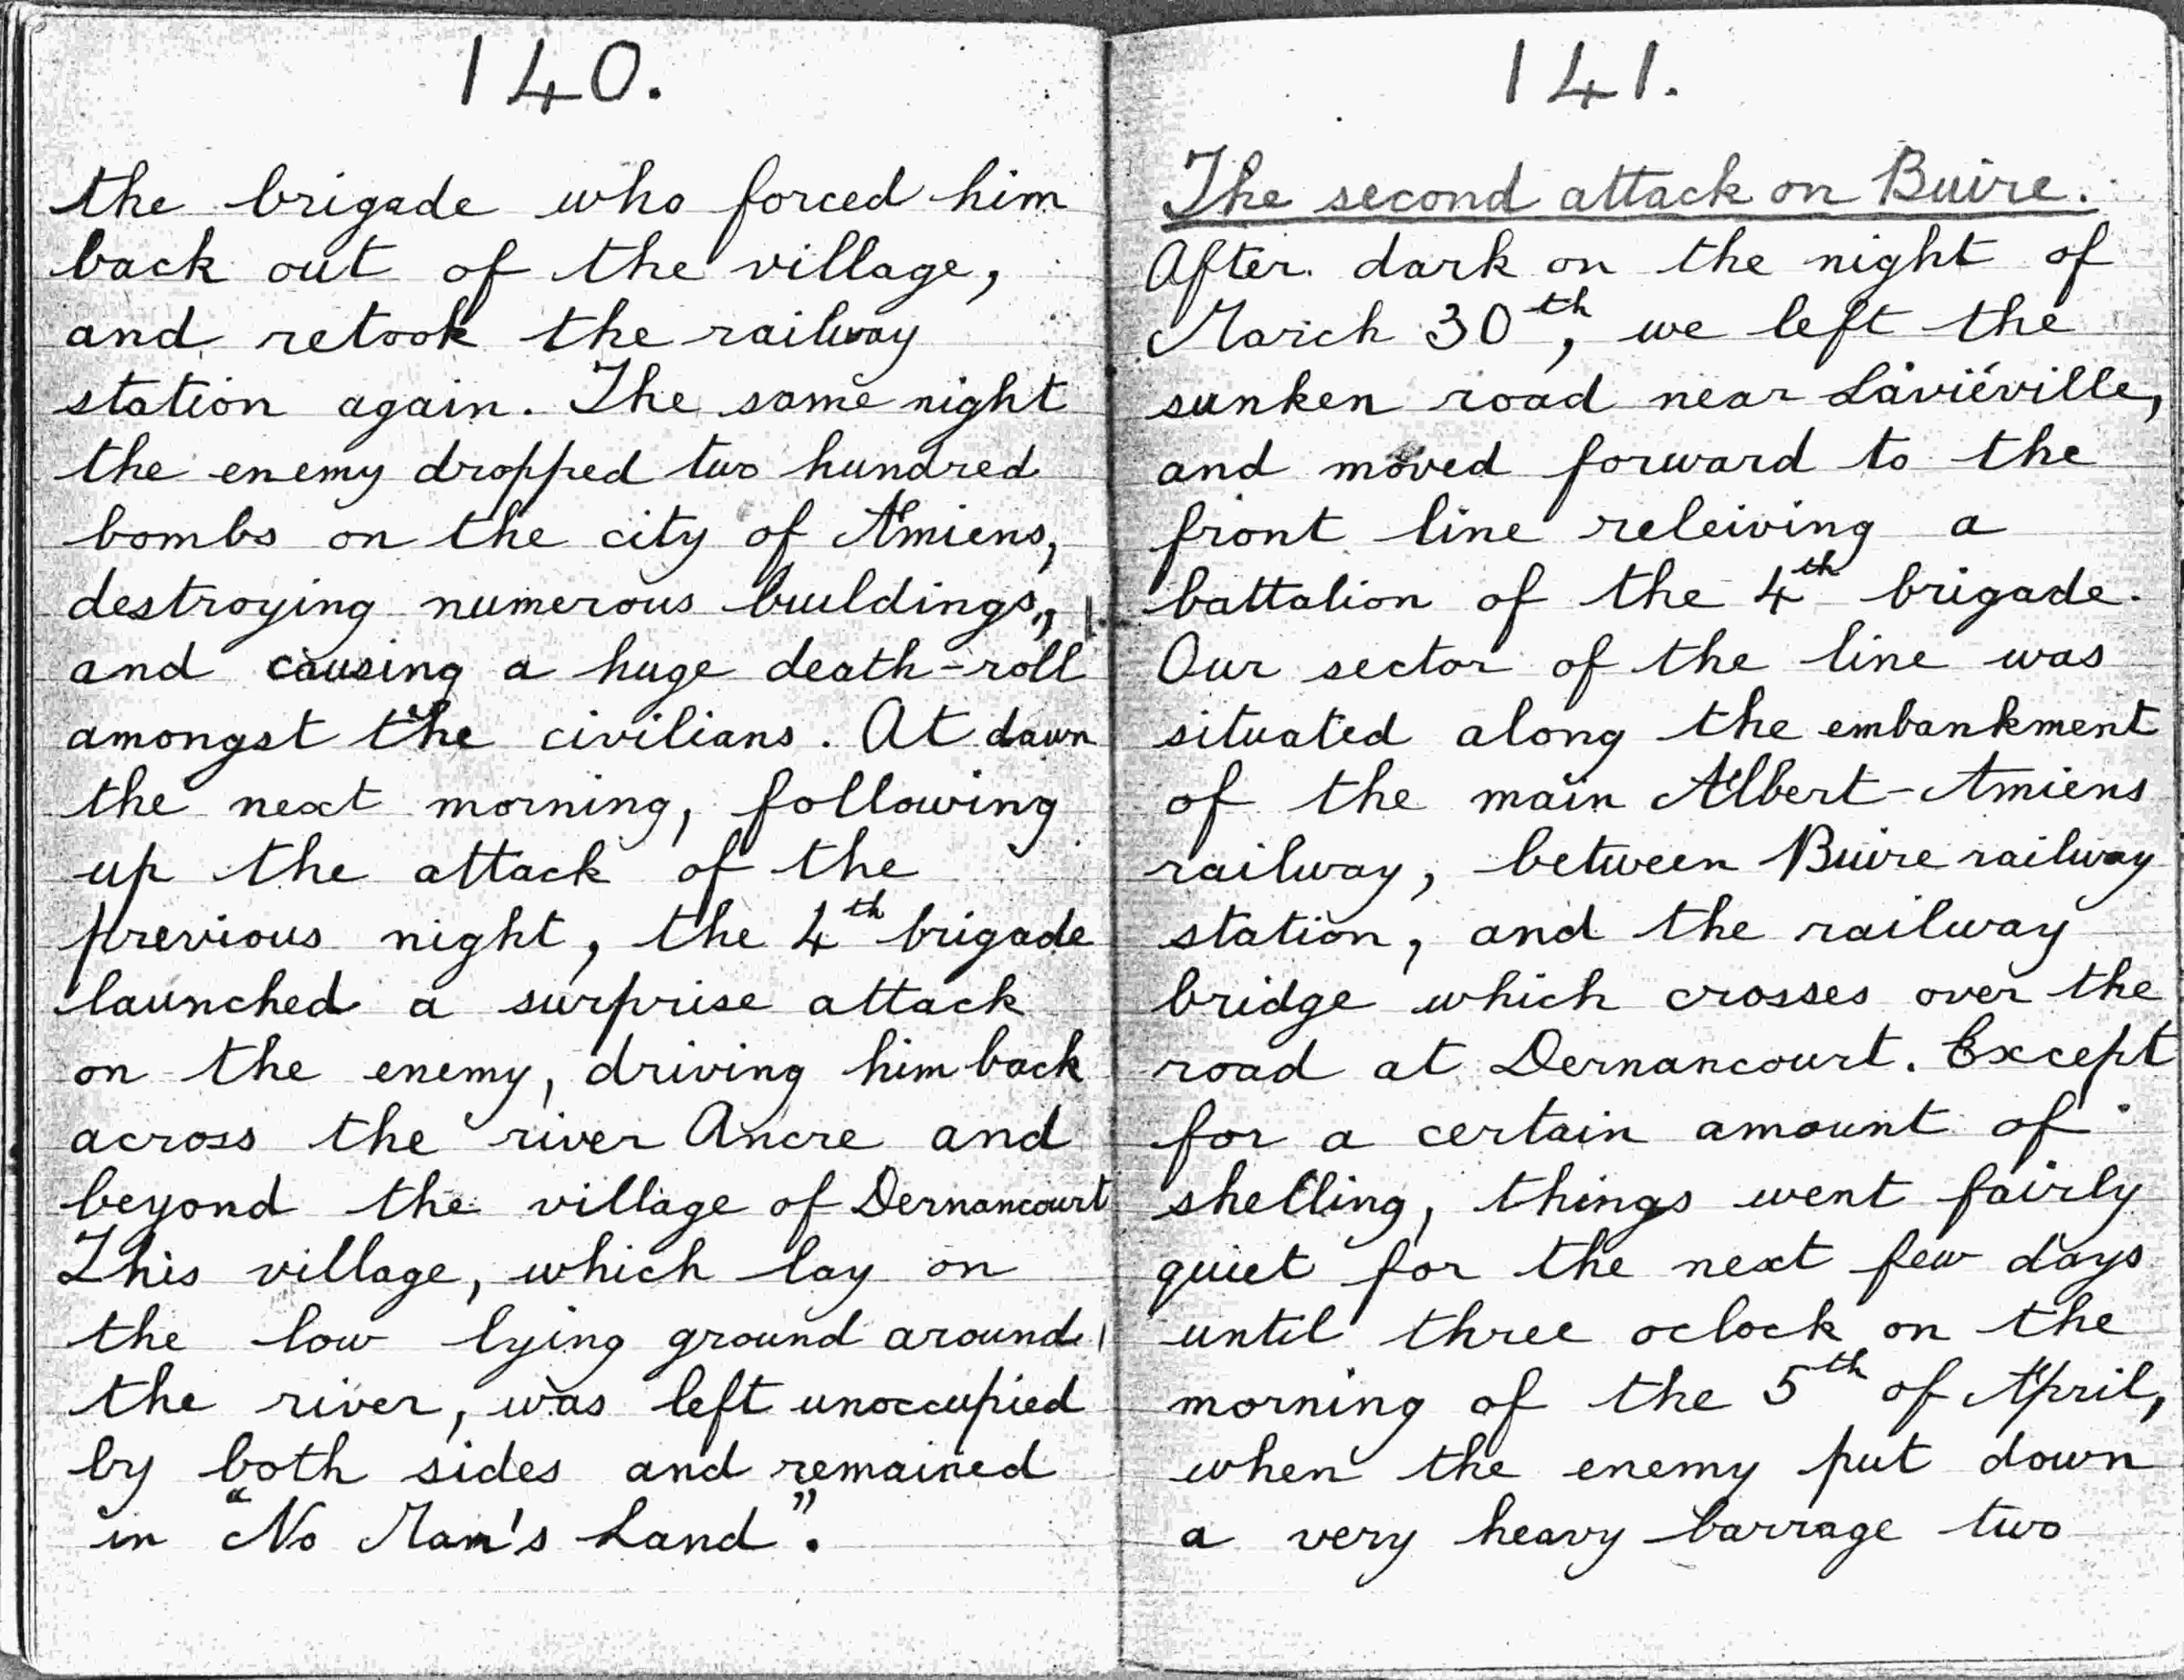 140.
the brigade who forced him
back out of the village,
and retook the railway
station again. The same night
the enemy dropped two hundred
bombs on the city of Amiens,
destroying numerous buildings,
and causing a huge death-roll
amongst the civilians. At dawn
the next morning, following
up the attack of the
previous night, the 4th brigade
launched a surprise attack
on the enemy, driving him back
across the river Ancre and
beyond the village of Dernancourt
This village, which lay on
the low lying ground around
the river, was left unoccupied
by both sides and remained
in "No Man's Land".
141.
The second attack on Buire.
After dark on the night of
March 30th, we left the
sunken road near Laviéville,
and moved forward to the
front line releiving a
battalion of the 4th brigade.
Our sector of the line was
situated along the embankment
of the main Albert-Amiens
railway, between Buire railway
station, and the railway
bridge which crosses over the
road at Dernancourt. Except
for a certain amount of
shelling, things went fairly
quiet for the next few days
until three oclock on the
morning of the 5th of April,
when the enemy put down
a very heavy barrage two